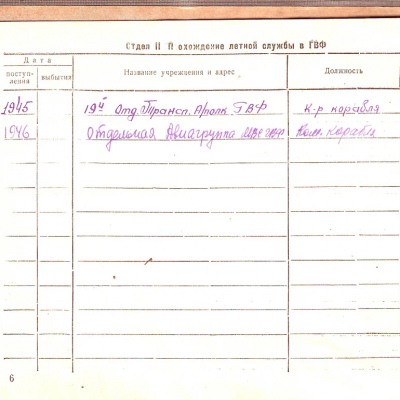 Отдел II Прохождение летной службы в ГВФ
Дата
поступ-
ления
выбытия
Название учреждения и адрес
Должность
1945 19й Отд. Трансп. А/полк ГВФ К-р корабля
1946 Отдельная Авиагруппа Ком. Корабля
6